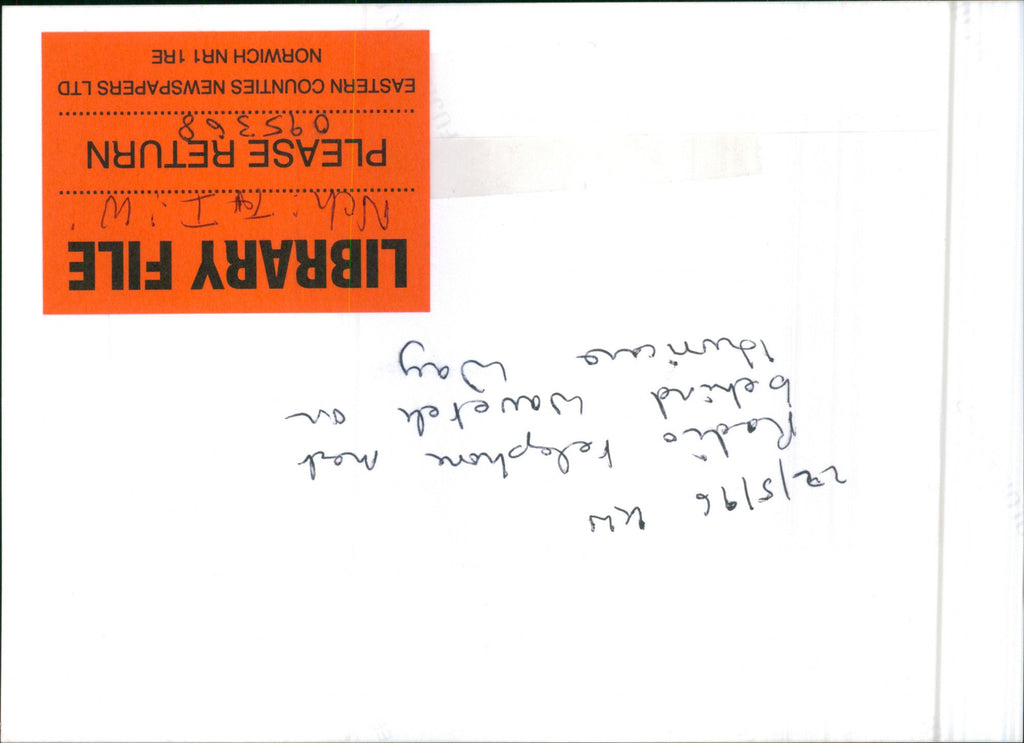 22/5/96 KW
Radio telephone mast
behind Wavetek on
Hurricane Way
LIBRARY FILE
PLEASE RETURN
095368
EASTERN COUNTIES NEWSPAPERS LTD
NORWICH NR1 1RE